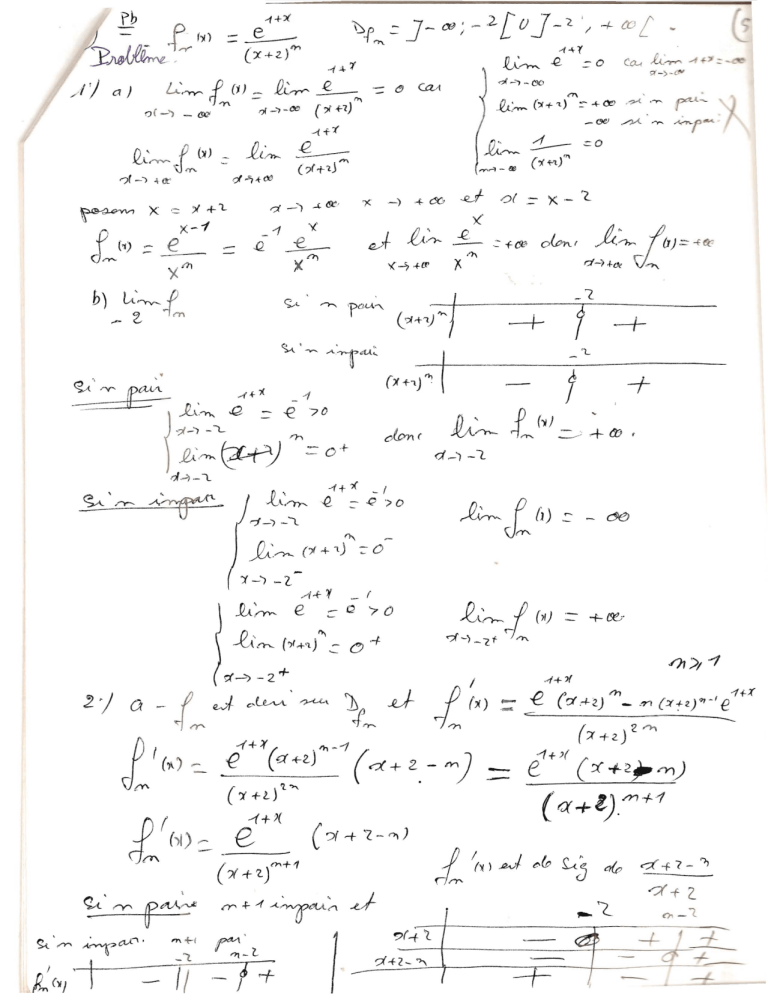 Pb
Problème f_n(x) = e^{1+x} / (x+2)^n   Df_n = ]-∞; -2[ U ]-2; +∞[.   (5
1°) a) Lim_{x→-∞} f_n(x) = lim_{x→-∞} e^{1+x} / (x+2)^n = 0 car { lim_{x→-∞} e^{1+x} = 0 car lim_{x→-∞} 1+x = -∞
lim (x+2)^n = +∞ si n pair
-∞ si n impair
lim_{n→-∞} 1 / (x+2)^n = 0
lim_{x→+∞} f_n(x) = lim_{x→+∞} e^{1+x} / (x+2)^n
posons X = x+2   x→+∞   X→+∞ et x = X-2
f_n(x) = e^{X-1} / X^n = e^{-1} e^X / X^n et lim_{X→+∞} e^X / X^n = +∞ donc lim_{x→+∞} f_n(x) = +∞
b) Lim_{-2} f_n   si n pair   (x+2)^n | + -2 0 +
si n impair   (x+2)^n | - -2 0 +
si n pair
{ lim_{x→-2} e^{1+x} = e^{-1} > 0
lim_{x→-2} (x+2)^n = 0+   donc lim_{x→-2} f_n(x) = +∞.
si n impair { lim_{x→-2} e^{1+x} = e^{-1} > 0   lim f_n(x) = -∞
lim_{x→-2^-} (x+2)^n = 0^-
{ lim e^{1+x} = e^{-1} > 0   lim_{x→-2+} f_n(x) = +∞
lim_{x→-2+} (x+2)^n = 0+
n⩾1
2°/ a - f_n est deri sur D_{f_n} et f_n'(x) = e^{1+x} (x+2)^n - n(x+2)^{n-1} e^{1+x} / (x+2)^{2n}
f_n'(x) = e^{1+x} (x+2)^{n-1} / (x+2)^{2n} (x+2-n) = e^{1+x} (x+2-n) / (x+2)^{n+1}
f_n'(x) = e^{1+x} / (x+2)^{n+1} (x+2-n)
f_n'(x) est de sig de x+2-n / x+2
si n paire n+1 impair et
-2   n-2
x+2 | - 0 + | +
x+2-n | - | - 0 +
+ | - | +
si n impair. n+1 pair
-2   n-2
f_n'(x) | - || - 0 +